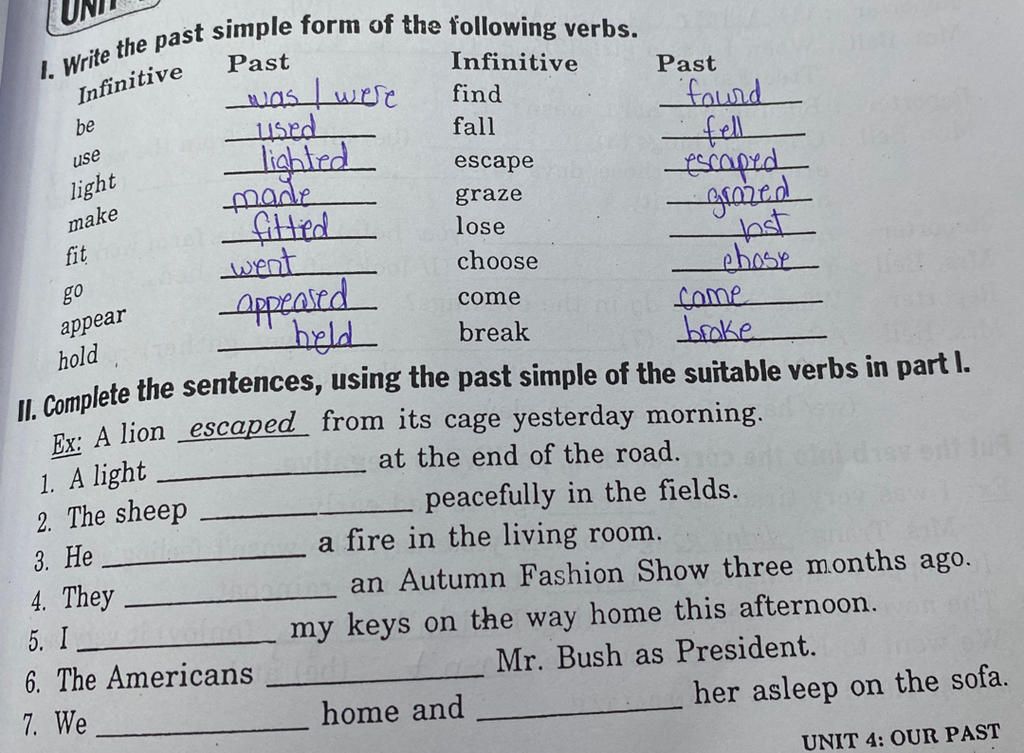 UNIT
I. Write the past simple form of the following verbs.
Infinitive Past Infinitive Past
be was / were find found
use used fall fell
light lighted escape escaped
make made graze grazed
fit fitted lose lost
go went choose chose
appear appeared come came
hold held break broke
II. Complete the sentences, using the past simple of the suitable verbs in part I.
Ex: A lion escaped from its cage yesterday morning.
1. A light ____________ at the end of the road.
2. The sheep ____________ peacefully in the fields.
3. He ____________ a fire in the living room.
4. They ____________ an Autumn Fashion Show three months ago.
5. I ____________ my keys on the way home this afternoon.
6. The Americans ____________ Mr. Bush as President.
7. We ____________ home and ____________ her asleep on the sofa.
UNIT 4: OUR PAST